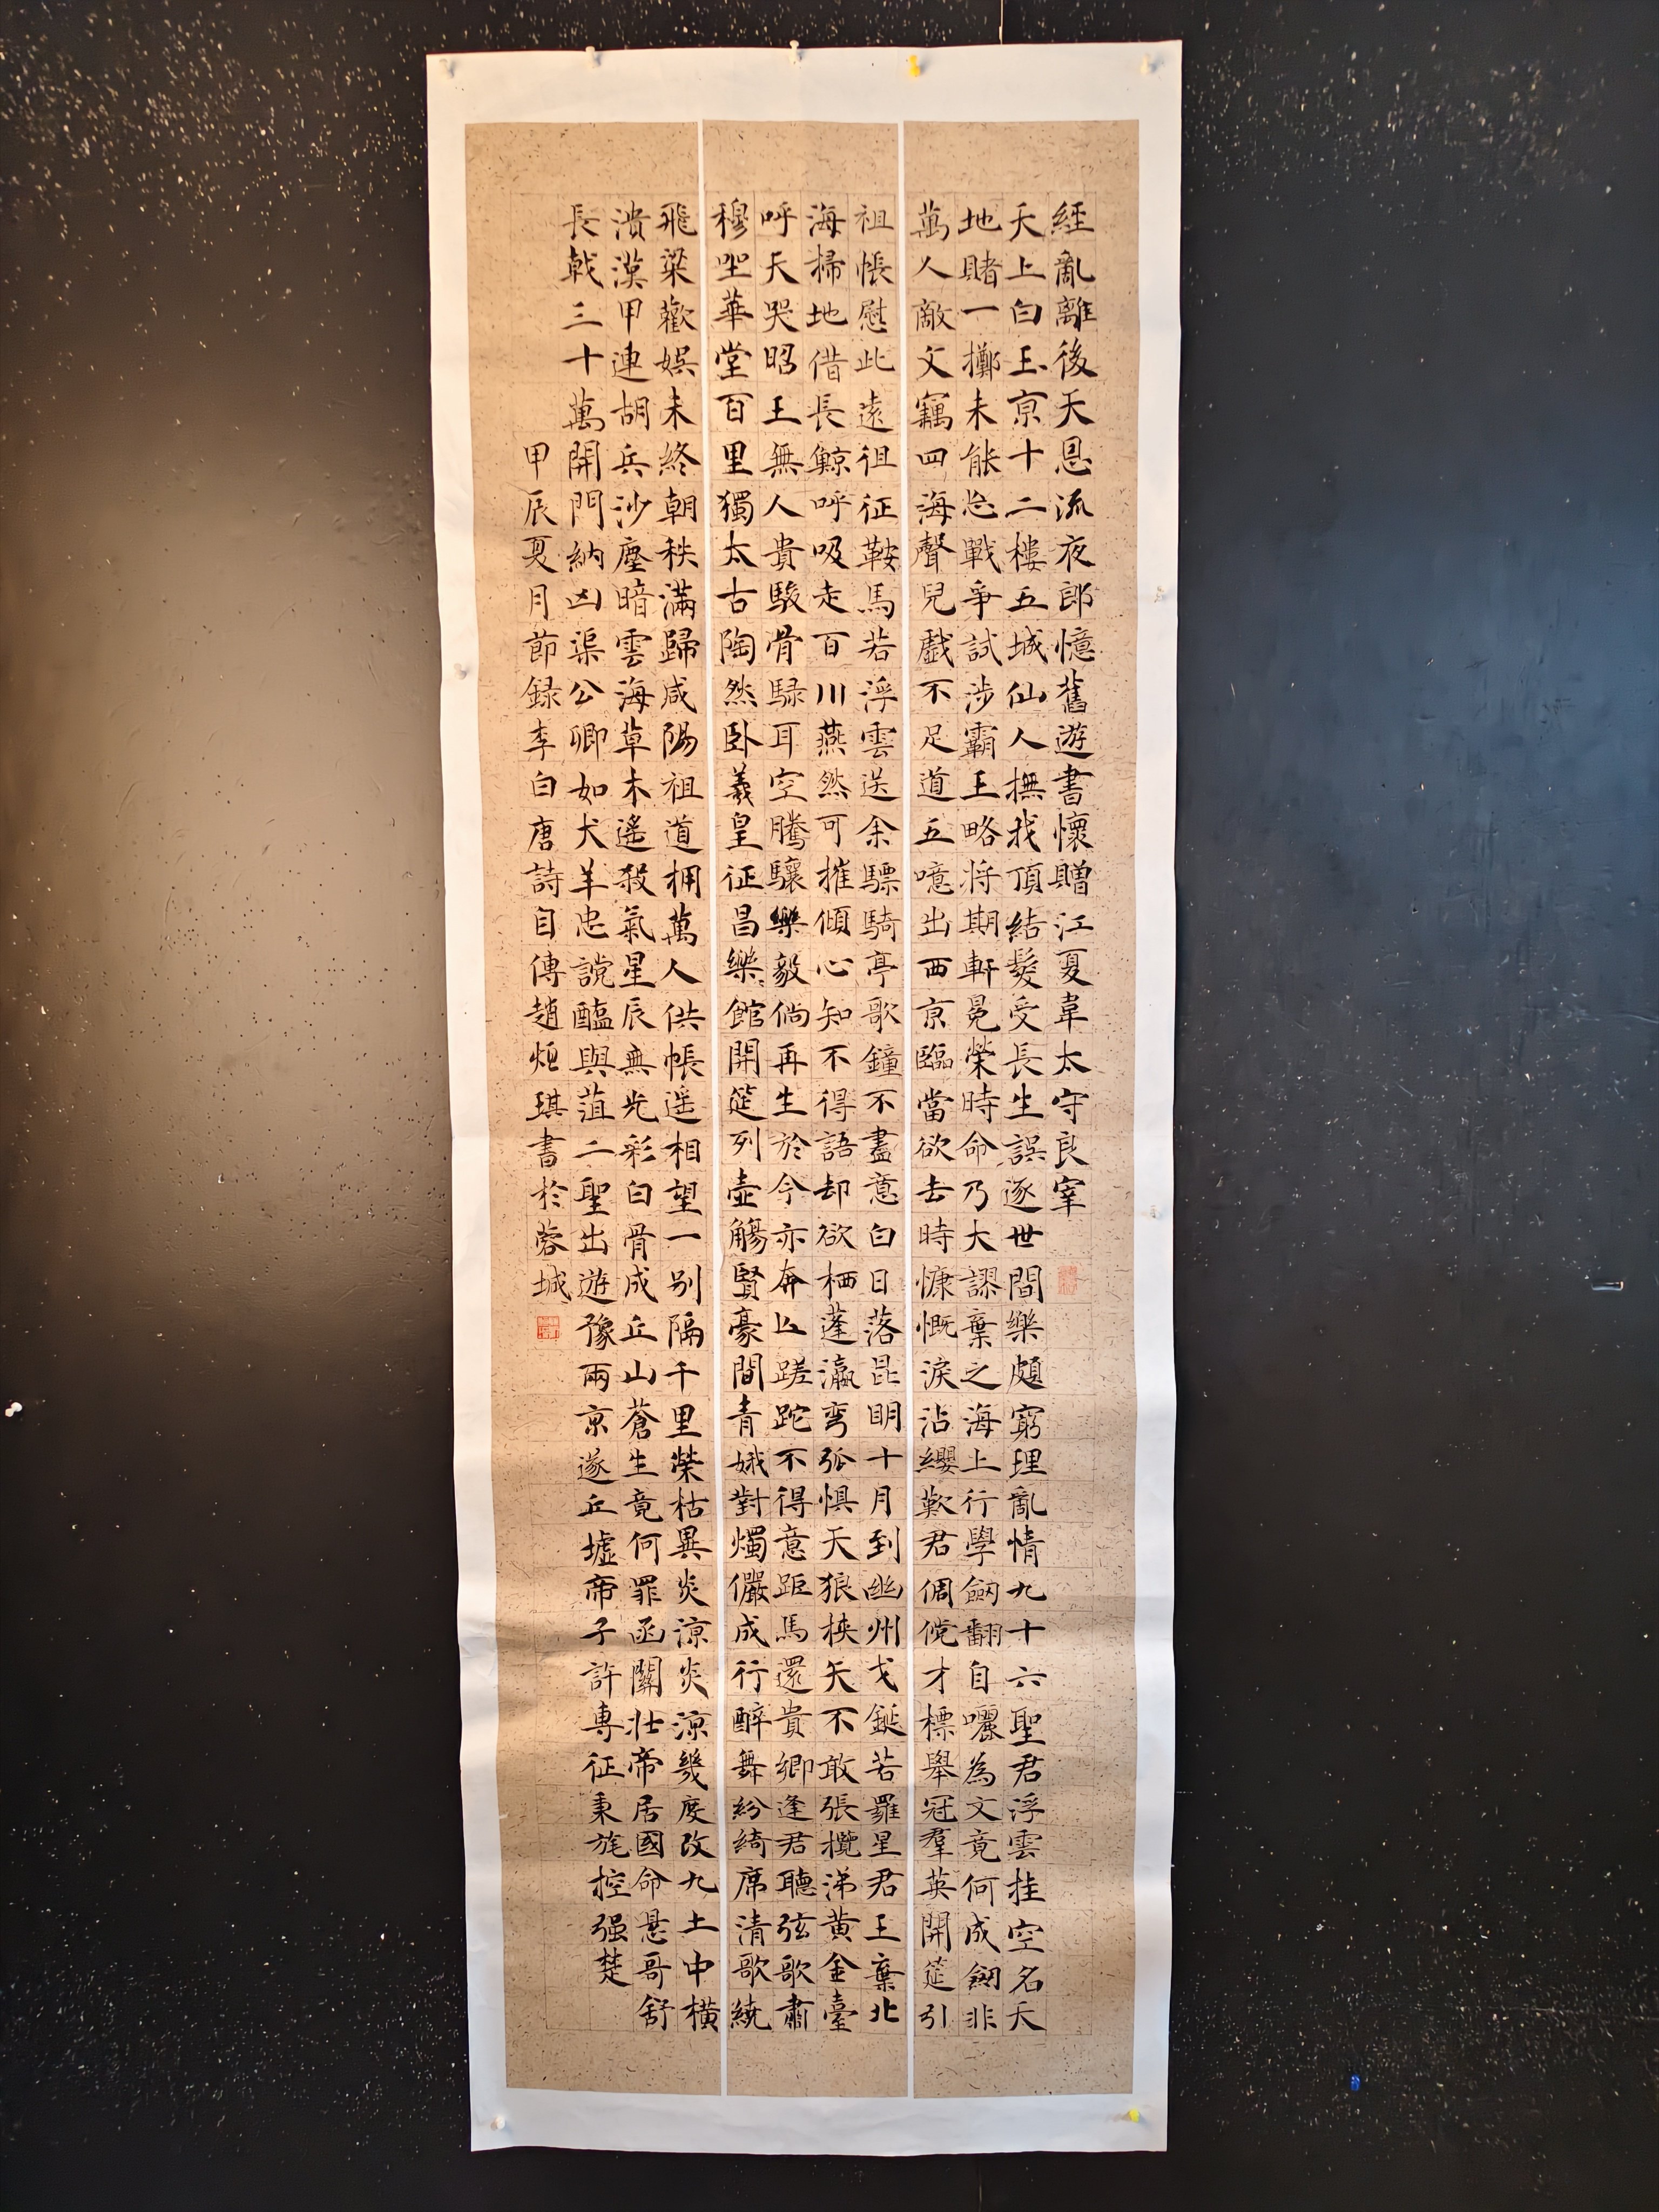 經亂離後天恩流夜郎憶舊遊書懷贈江夏韋太守良宰
天上白玉京十二樓五城仙人撫我頂結髮受長生誤逐世間樂頗窮理亂情九十六聖君浮雲挂空名天
地賭一擲未能忘戰爭試涉霸王略將期軒冕榮時命乃大謬棄之海上行學劍翻自囇為文竟何成劍非
萬人敵文竊四海聲兒戲不足道五噫出西京臨當欲去時慷慨淚沾纓歎君倜傥才標舉冠羣英開筵引
祖帳慰此遠徂征鞍馬若浮雲送余驃騎亭歌鐘不盡意白日落昆明十月到幽州戈鋋若羅星君王棄北
海掃地借長鯨呼吸走百川燕然可摧傾心知不得語却欲栖蓬瀛弯弧惧天狼挟矢不敢張攬涕黄金臺
呼天哭昭王無人貴駿骨騄耳空騰驤樂毅倘再生於今亦奔亾蹉跎不得意距馬還貴卿逢君聽弦歌肅
穆坐華堂百里獨太古陶然卧羲皇征昌樂館開筵列壺觴賢豪間青娥對燭儼成行醉舞紛綺席清歌繞
飛梁歡娱未終朝秩滿歸咸陽祖道拥萬人供帳遥相望一别隔千里榮枯異炎涼炎涼幾度改九土中橫
潰漢甲連胡兵沙塵暗雲海草木遙殺氣星辰無光彩白骨成丘山蒼生竟何罪函關壯帝居國命悬哥舒
長戟三十萬開門納凶渠公卿如犬羊忠讜醢與菹二聖出遊豫兩京遂丘墟帝子許專征秉旄控强楚
甲辰夏月節録李白唐詩自傳趙琪書於蓉城